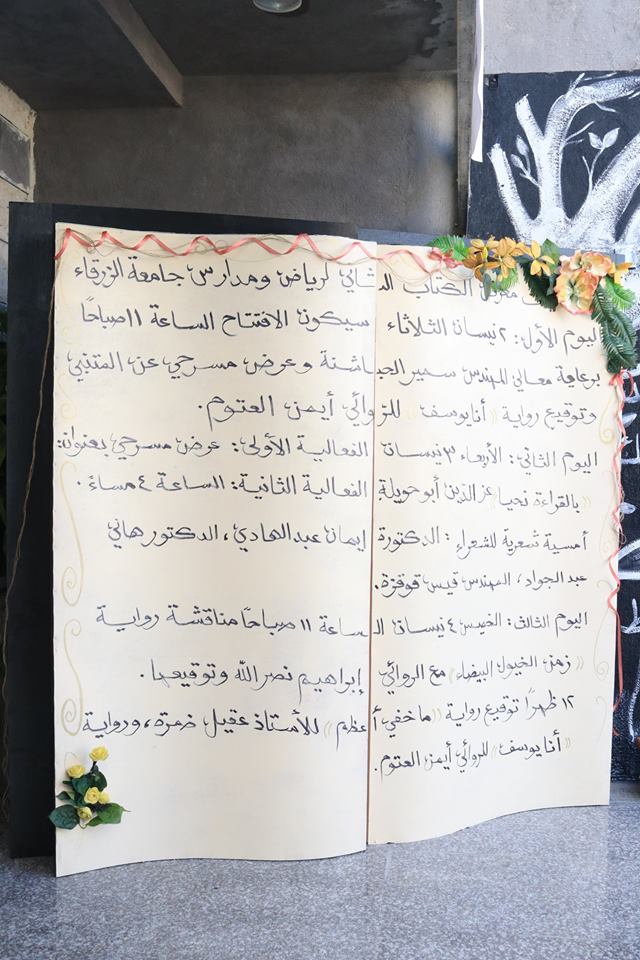 معرض الكتاب الثاني لرياض ومدارس جامعة الزرقاء
اليوم الأول: ٢ نيسان الثلاثاء سيكون الافتتاح الساعة ١١ صباحًا
برعاية معالي المهندس سمير الحباشنة وعرض مسرحي عن المتنبي
وتوقيع رواية "أنا يوسف" للروائي أيمن العتوم.
اليوم الثاني: الأربعاء ٣ نيسان الفعالية الأولى: عرض مسرحي بعنوان:
"بالقراءة نحيا" عز الدين أبو حويلة الفعالية الثانية: الساعة ٤ مساءً.
أمسية شعرية للشعراء: الدكتورة إيمان عبد الهادي، الدكتور هاني
عبد الجواد، المهندس قيس قوقزة.
اليوم الثالث: الخميس ٤ نيسان الساعة ١١ صباحًا مناقشة رواية
"زمن الخيول البيضاء" مع الروائي إبراهيم نصر الله وتوقيعها.
١٢ ظهرًا توقيع رواية "ما خفي أعظم" للأستاذ عقيل ضمرة، ورواية
"أنا يوسف" للروائي أيمن العتوم.